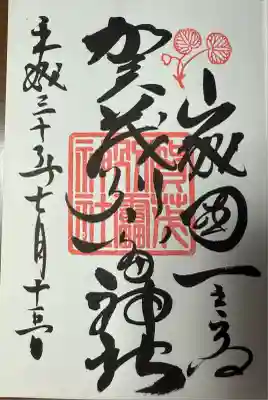 山城国一之宮
賀茂別雷神社
賀茂
別雷
神社
平成三十年七月十三日